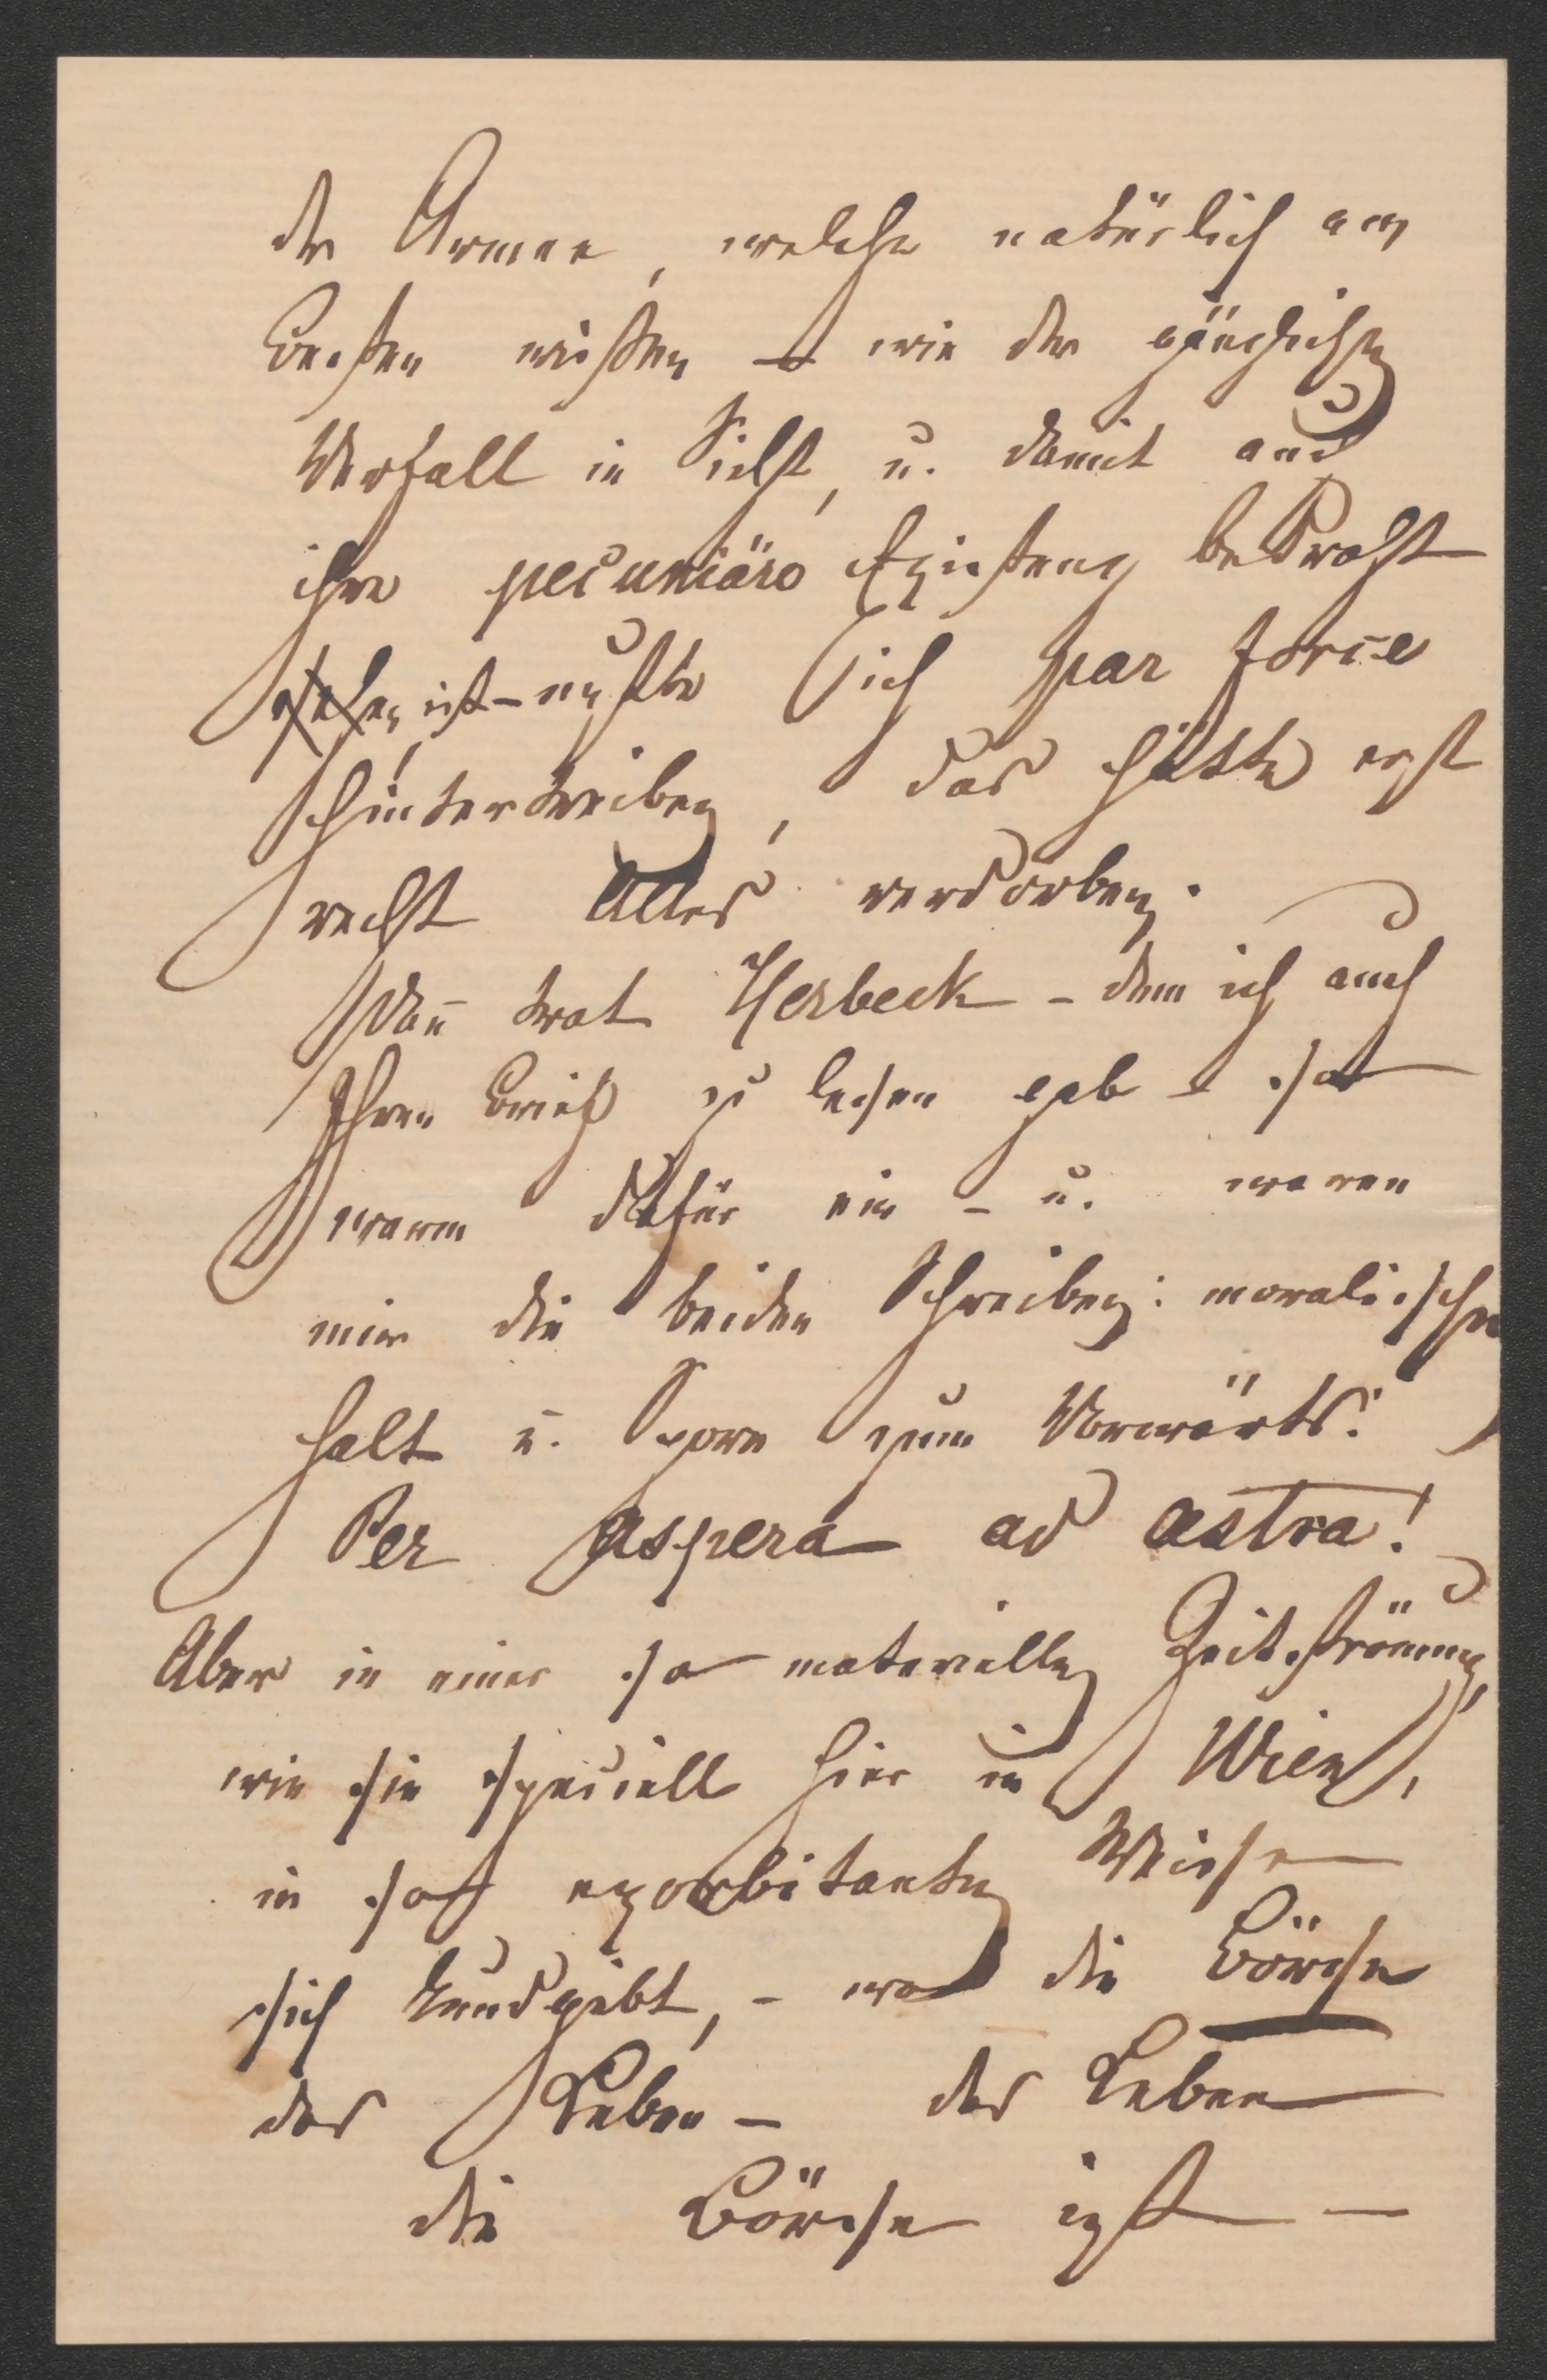 der Armee, welche natürlich am
Besten wißen – wie der gänzliche
Verfall in Sicht, u. damit auch
ihre pecuniäre Existenz bedroht
ist – mußte ich par force
hintertreiben, das hätte erst
recht Alles verdorben.
Dan̄ trat Herbeck – dem ich auch
Ihren Brief zu lesen gab – so
warm dafür ein – u. waren
mir die beiden Schreiben: moralischer
Halt u. Sporn zum Vorwärts!
Per aspera ad astra!
Aber in einer so materiellen Zeitströmung,
wie sie speciell hier in Wien,
in so exorbitanter Weise
sich kundgibt, – wo die Börse
das Leben – das Leben
die Börse ist –